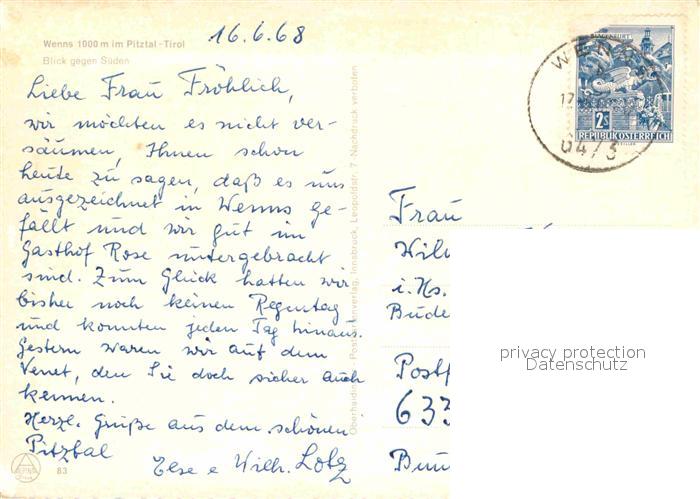 16.6.68
Wenns 1000 m im Pitztal-Tirol
Blick gegen Süden
Liebe Frau Fröhlich,
wir möchten es nicht ver-
säumen, Ihnen schon
heute zu sagen, daß es uns
ausgezeichnet in Wenns ge-
fällt und wir gut im
Gasthof Rose untergebracht
sind. Zum Glück hatten wir
bisher noch keinen Regentag
und konnten jeden Tag hinaus.
Gestern waren wir auf dem
Venet, den Sie doch sicher auch
kennen.
Herzl. Grüße aus dem schönen
Pitztal
Else e Wilh. Lotz
83
Postkartenverlag, Innsbruck, Leopoldstr. 7 - Nachdruck verboten
WENNS
17
6473
2S
REPUBLIK ÖSTERREICH
Frau
i. Hs.
633
privacy protection
Datenschutz